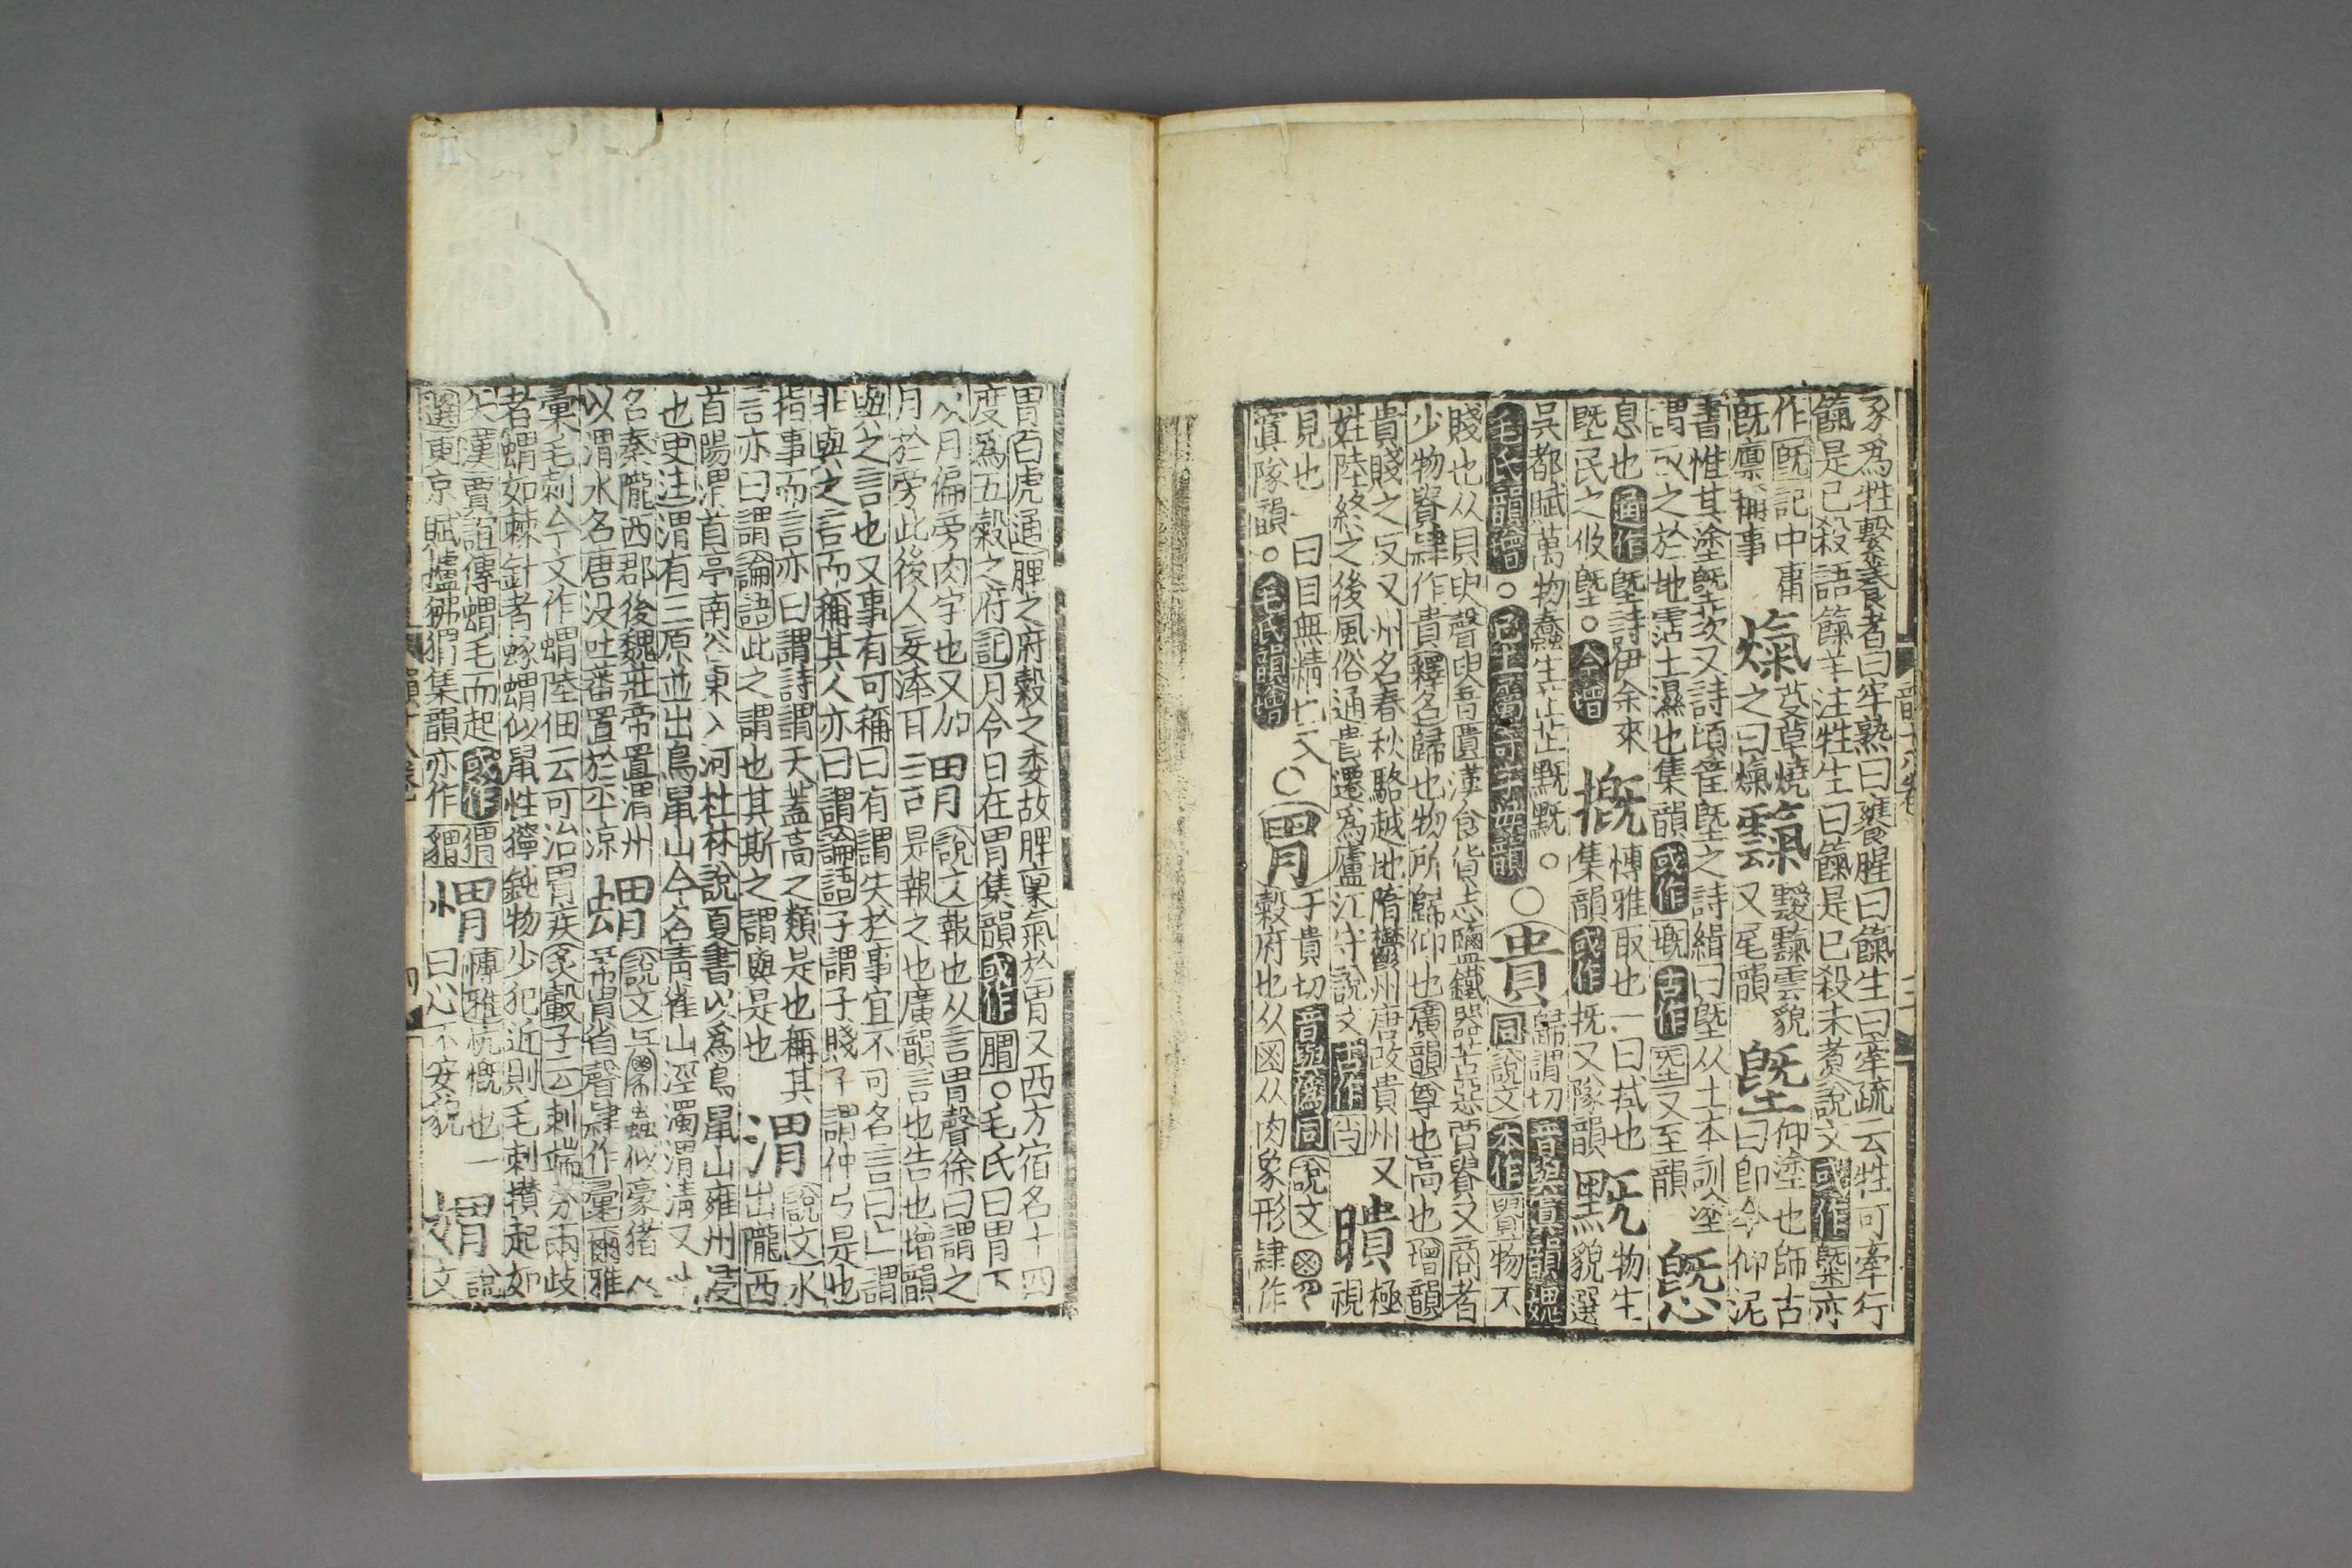 豕爲牲繫養者曰牢熟曰饔腥曰餼生曰牽疏云牲可牽行
餼是已殺語餼羊注牲生曰餼是已殺未煑說文或作㮣亦
作旣記中庸
旣廩稱事
燹之曰燹
又尾韻
塈仰塗也師古
曰卽今仰泥
書惟其塗塈茨又詩頃筐塈之詩緝曰塈从土本訓塗
謂取之於地霑土濕也集韻或作墍古作㙁又至韻
息也通作塈詩伊余來
塈民之攸塈。今增
摡博雅取也一曰拭也
集韻或作抚又隊韻
物生
黖貌選
吳都賦萬物蠢生芒芒黖黖。○貴歸謂切音與寘韻媿
毛氏韻增。已上屬寄字母韻同說文本作𧷓物不
賤也从貝臾聲臾音匱漢食貨志鹽鐵器苦惡賈貴又商者
少物貴隷作貴釋名歸也物所歸仰也廣韻尊也高也增韻
貴賤之反又州名春秋駱越地隋鬱州唐改貴州又
姓陸終之後風俗通貴遷爲廬江守說文古作
瞶極視
見也一曰目無精也又
寘隊韻。毛氏韻增
○胃于貴切音與僞同說文
穀府也从𡇒从肉象形隷作
胃白虎通脾之府穀之委故脾稟氣於胃又西方宿名十四
度爲五穀之府記月令日在胃集韻或作䐴。毛氏曰胃下
从月偏旁肉字也又加
月於旁此後人妄涂耳
謂說文報也从言胃聲徐曰謂之
是報之也廣韻言也告也增韻
與之言也又事有可稱曰有謂失於事宜不可名言曰亡謂
非與之言而稱其人亦曰謂論語子謂子賤子謂仲弓是也
指事而言亦曰謂詩謂天蓋高之類是也稱其
言亦曰謂論語此之謂也其斯之謂與是也
渭說文水
出隴西
首陽渭首亭南谷東入河杜林說夏書以爲鳥鼠山雍州浸
也史注渭有三原並出鳥鼠山今名靑雀山涇濁渭淸又
名秦隴西郡後魏莊帝置渭州
以渭水名唐没吐蕃置於平涼
蝟說文蟲似豪猪
胃省聲隷作彙爾雅
彙毛刺今文作蝟陸佃云可治胃疾炙轂子云刺端分兩歧
者蝟如棘針者蝟似鼠性獰鈍物少犯近則毛刺攅起如
矢漢賈誼傳蝟毛而起或作猬
選東京賦攎狒猬集韻亦作𧳊
㥜博雅忼慨也一
曰心不安貌
說
文